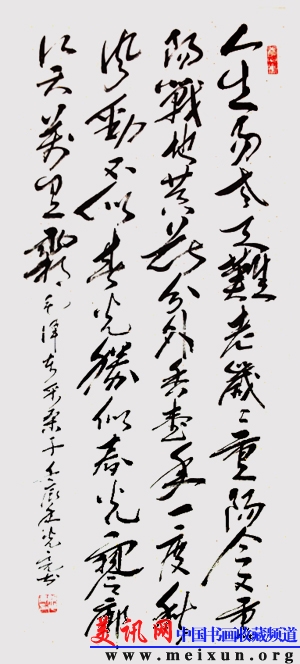 人生易老天難老歲歲重陽今又重
陽戰地黃花分外香一年一度秋
風勁不似春光勝似春光寥廓
江天萬里霜
毛澤東采桑子
美讯网
中国书画收藏频道
www.meixun.org